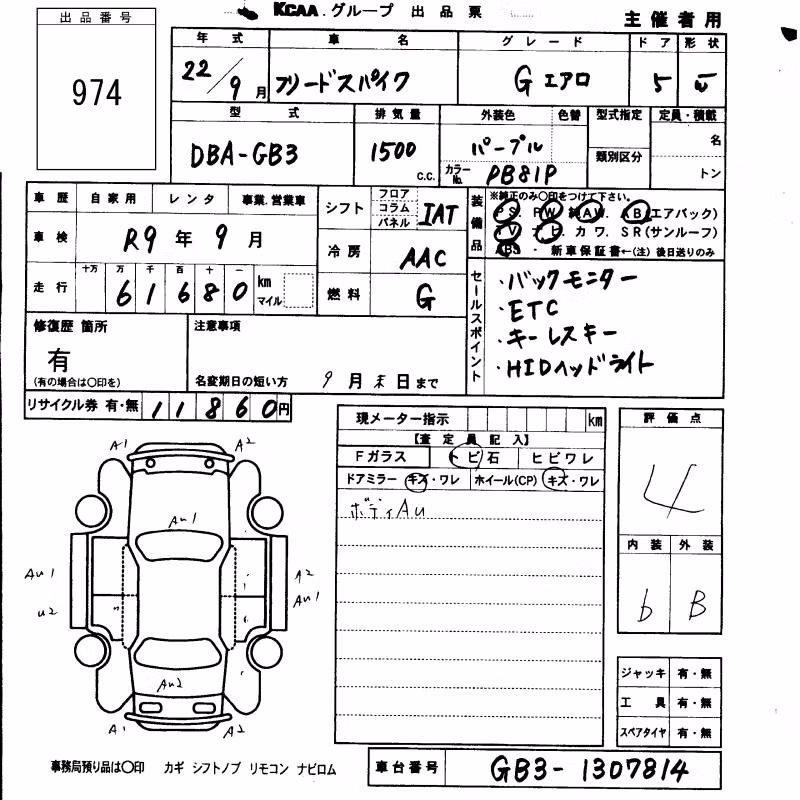 KCAA.グループ 出品票
主催者用
出品番号
974
年式 車名 グレード ドア 形状
22/9月 フリードスパイク G エアロ 5 W
型式 排気量 外装色 色替 型式指定 定員・積載
DBA-GB3 1500 C.C. パープル 類別区分 名
カラーNo. PB81P トン
車歴 自家用 レンタ 事業.営業車
車検 R9年9月
走行 十万 万 千 百 十 一
61680 km マイル
シフト フロア コラム パネル IAT
冷房 AAC
燃料 G
装備品 ※純正のみ〇印をつけて下さい。
PS. PW. 純AW. AB(エアバック)
TV. ナビ. カワ. SR(サンルーフ)
ABS . 新車保証書←(注)後日送りのみ
セールスポイント
・バックモニター
・ETC
・キーレスキー
・HIDヘッドライト
修復歴 箇所
有
(有の場合は〇印を)
注意事項
名変期日の短い方 9月末日まで
リサイクル券 有・無 11860円
現メーター指示 km
【査定員記入】
Fガラス トビ石 ヒビワレ
ドアミラー キズ・ワレ ホイール(CP) キズ・ワレ
ボディAu
評価点
4
内装 外装
b B
ジャッキ 有・無
工具 有・無
スペアタイヤ 有・無
A1 A2
Au1
Au1 A2
Au1
U2
Au2
A1 A2
事務局預り品は〇印 カギ シフトノブ リモコン ナビロム
車台番号 GB3-1307814